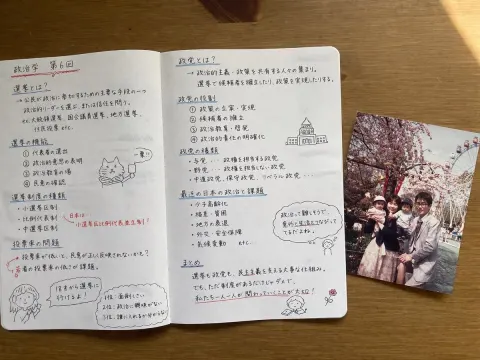 政治学 第6回
選挙とは？
→ 公民が政治に参加するための主要な手段の一つ
政治的リーダーを選ぶ、または信任を問う。
ex) 大統領選挙、国会議員選挙、地方選挙、
住民投票 etc.
選挙の機能
① 代表者の選出
② 政治的意思の表明
③ 政治教育の場
④ 民意の確認
一票!!
選挙制度の種類
・小選挙区制
・比例代表制
・中選挙区制
日本は
小選挙区比例代表並立制！
投票率の問題
・投票率が低いと、民意が正しく反映されないかも？
・若者の投票率の低さが課題。
1位 面倒くさい
2位 政治に興味がない
3位 誰に入れるか分からない
政党とは？
→ 政治的主義・政策を共有する人々の集まり。
選挙で候補者を擁立したり、政策を実現したりする。
政党の役割
① 政策の立案・実現
② 候補者の擁立
③ 政治教育・啓発
④ 政治的責任の明確化
政党の種類
・与党 … 政権を担当する政党
・野党 … 政権を担当しない政党
・中道政党、保守政党、リベラル政党 …
最近の日本の政治と課題
・少子高齢化
・格差・貧困
・地方の衰退
・外交・安全保障
・気候変動 etc.
政治って難しそうで、
意外と生活とつながっ
てるんだよね。
まとめ
選挙も政党も、民主主義を支える大事な仕組み。
でも、ただ制度があるだけじゃダメで、
私たち一人一人が関わっていくことが大切！